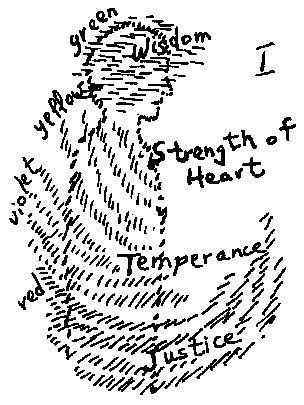 green
Wisdom
I
yellow
Strength of
Heart
violet
Temperance
red
Justice